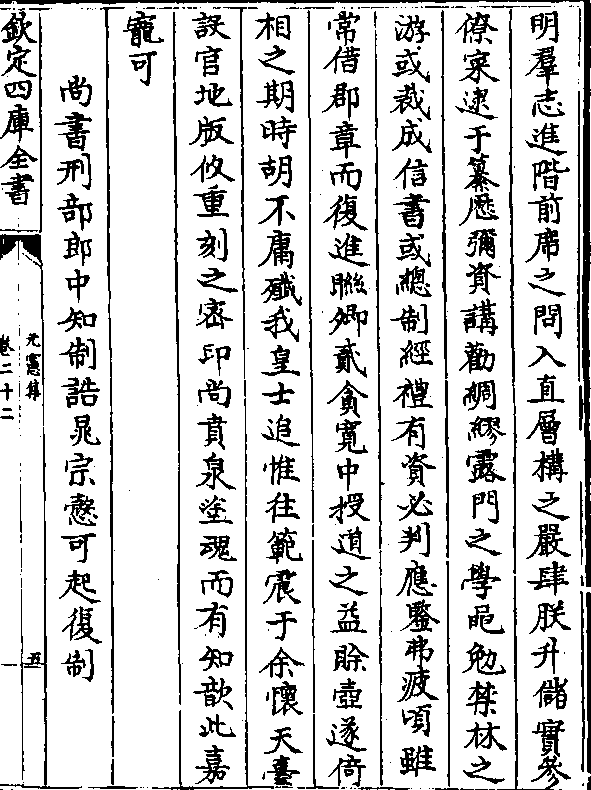 明羣志進階前席之問入直層構之嚴肆朕升儲實參
僚寀逮于纂歷彌資講勸綢繆露門之學黽勉禁林之
游或裁成信書或總制經禮有資必判應鑒弗疲頃雖
常借郡章而復進聯卿貳貪寛中授道之益賒壺遂倚
相之期時胡不庸殲我皇士追惟往範震于余懷天臺
設官地版攸重刻之密印尚賁泉塗魂而有知歆此嘉
寵可
尚書刑部郎中知制誥晁宗慤可起復制
欽定四庫全書
元憲集
卷二十二
五